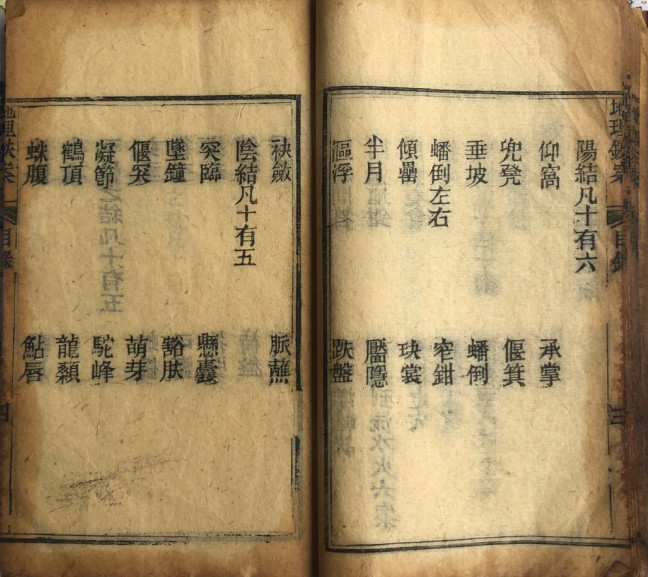 地理鉄案 目錄
陽結凡十有六
仰窩 承掌
兜凳 偃箕
垂坡 蟠倒
蟠倒左右 窄鉗
傾罍 玦裳
半月 靨隱
漚浮 趺盤
袂斂 脈蘸
陰結凡十有五
突臨 懸囊
墜鐘 豁肤
偃 萌芽
凝節 駝峰
鶴頂 龍顙
蛛腹 鮎唇
地理鉄案 目錄 四